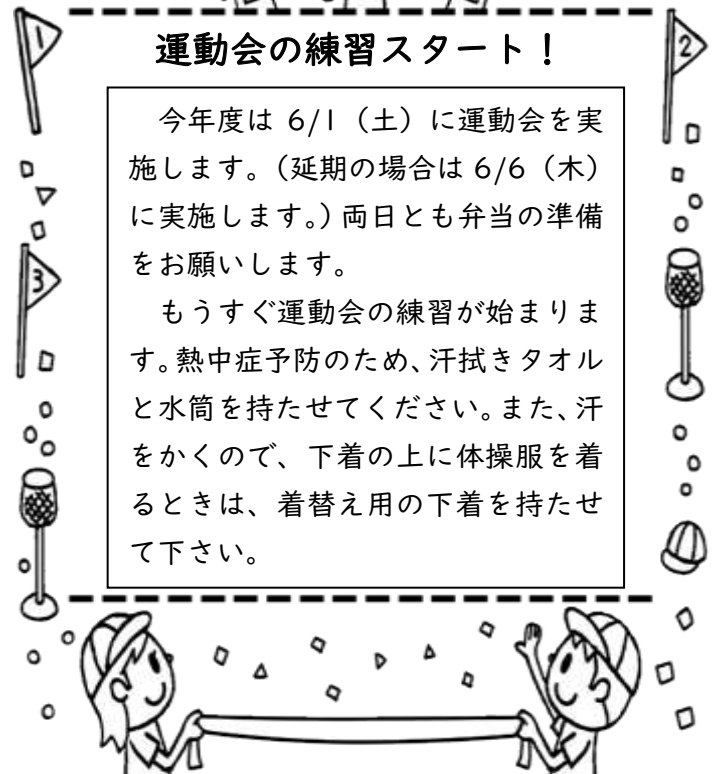 1
2
3
運動会の練習スタート！
今年度は 6/1（土）に運動会を実
施します。（延期の場合は 6/6（木）
に実施します。）両日とも弁当の準備
をお願いします。
もうすぐ運動会の練習が始まりま
す。熱中症予防のため、汗拭きタオル
と水筒を持たせてください。また、汗
をかくので、下着の上に体操服を着
るときは、着替え用の下着を持たせ
て下さい。